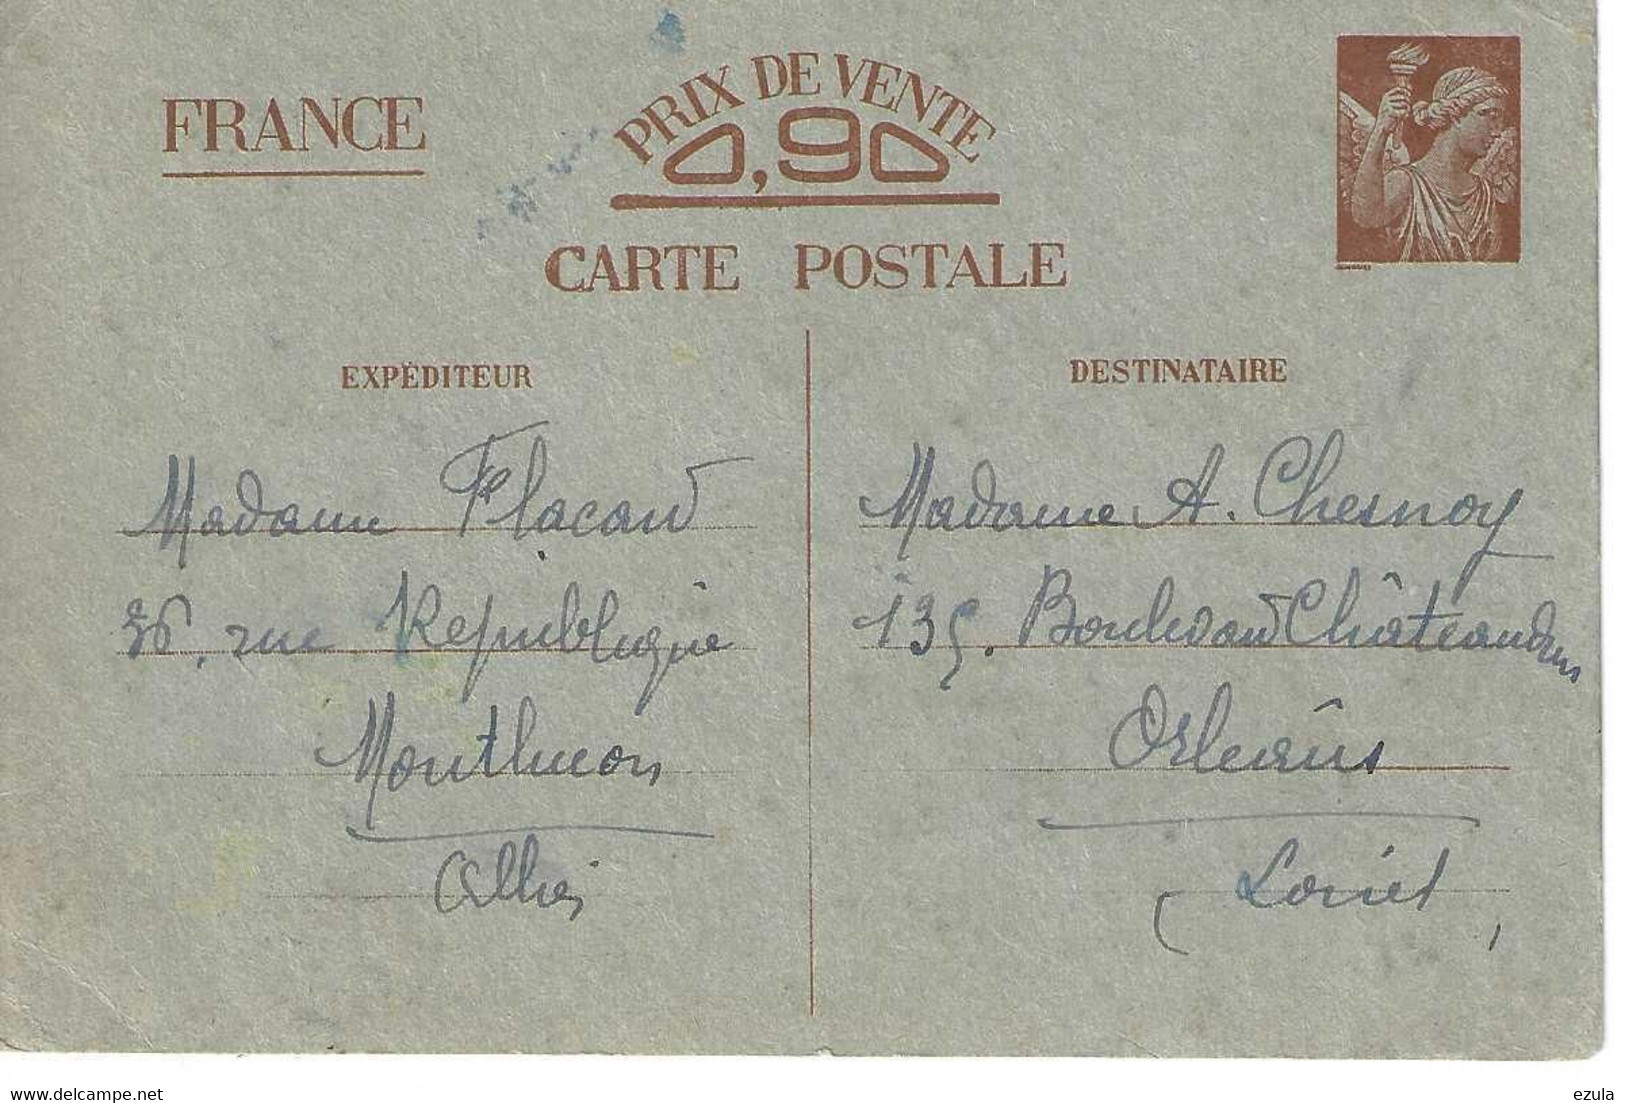 FRANCE
PRIX DE VENTE
0,90
CARTE POSTALE
EXPÉDITEUR
Madame Flacard
36, rue République
Montlucon
Allier
DESTINATAIRE
Madame A. Chesnoy
135. Boulevard Châteaudun
Orléans
Loiret
www.delcampe.net
ezula